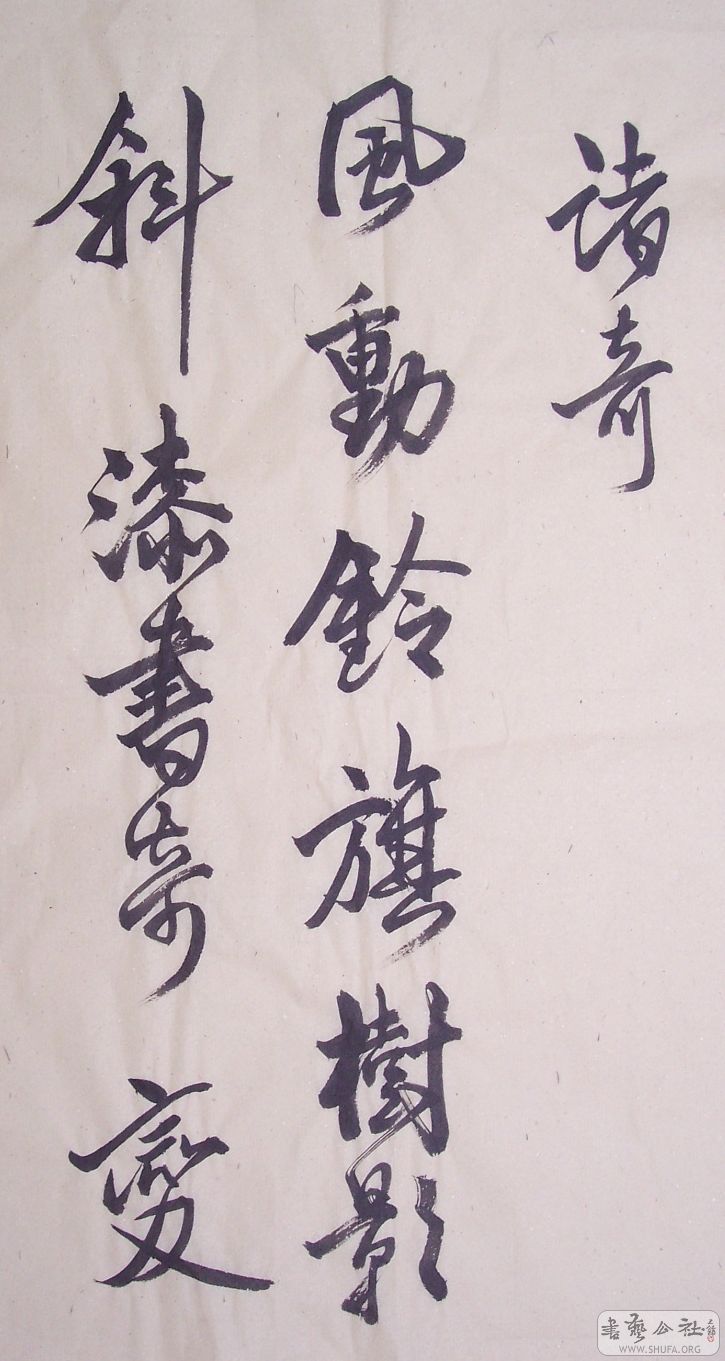 诸奇
風動鈴旗樹影
斜漆書奇變
書藝公社
WWW.SHUFA.ORG